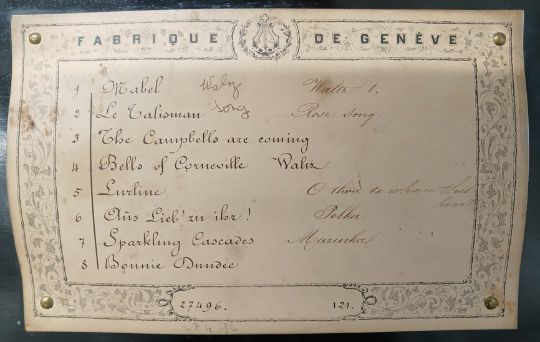 FABRIQUE DE GENÈVE
1 Mabel Waltz Waltz 1.
2 Le Talisman Song Rose song.
3 The Campbells are coming
4 Bells of Corneville Waltz
5 Lurline O thou to whom this
heart
6 Aus Lieb' zu ihr! Polka
7 Sparkling Cascades Mazurka
8 Bonnie Dundee
27496. 121.